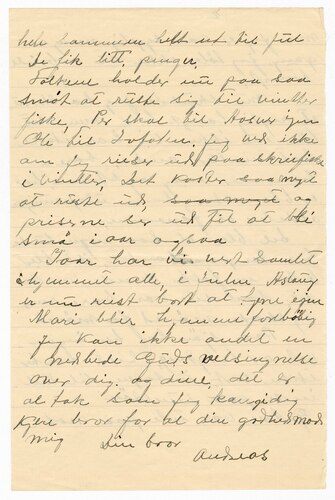 hele sammen helt ut til jul
De fik litt, penger.
Folkene holder nu paa saa
smøt at ruste sig til vinter
fiske, Per skal til Hosver igen
Ole til Lofoten. jeg ved ikke
om jeg reiser ud paa skreifiske
i vinter, Det koster saa meget
at ruste ud, saa meget og
priserne ser ud til at bli
smaa i aar ogsaa
I aar har vi vert samlet
hjemmet alle, i julen, Aslaug
er nu reist bort at tjene igen
Mari blir hjemme foreløbig
Jeg kan ikke andet en
nedbede Guds velsingnelse
over dig. og dine, det er
al tak som jeg kan gi dig
kjere bror for al din godhed mod
mig Din bror
Andreas